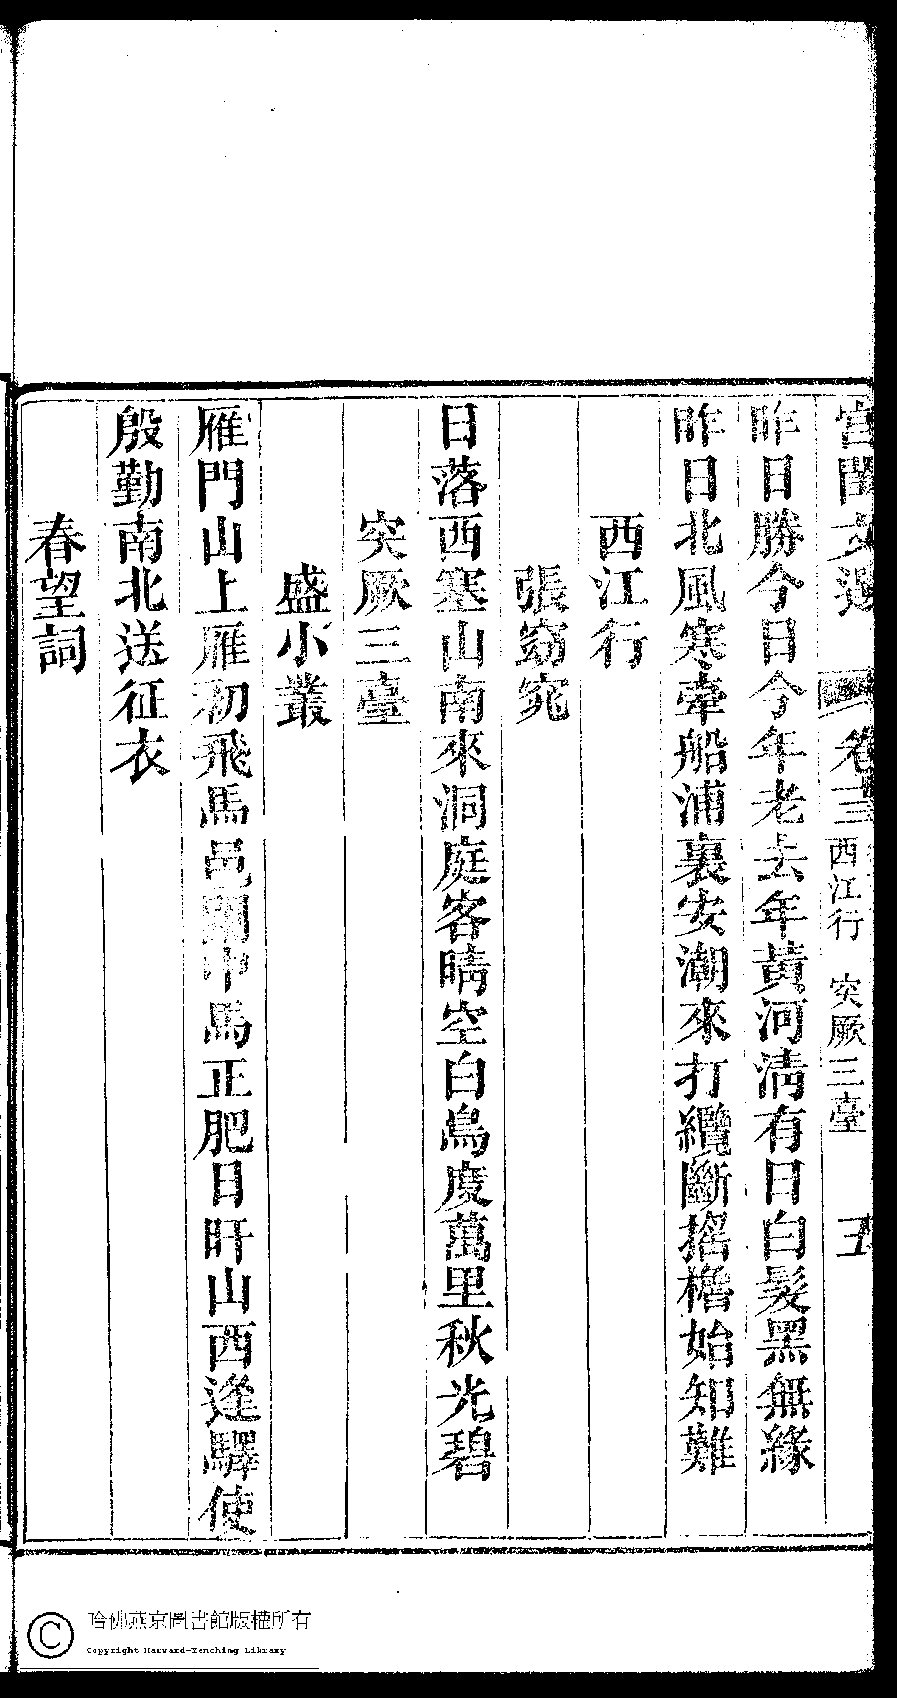 宮閨文選 卷三 西江行 突厥三臺 五
昨日勝今日今年老去年黃河清有日白髮黑無緣
昨日北風寒牽船浦裏安潮來打纜斷搖櫓始知難
西江行
張窈窕
日落西塞山南來洞庭客晴空白鳥度萬里秋光碧
突厥三臺
盛小叢
雁門山上雁初飛馬邑闌中馬正肥日旰山西逢驛使
殷勤南北送征衣
春望詞
哈佛燕京圖書館版權所有
Copyright Harvard-Yenching Library